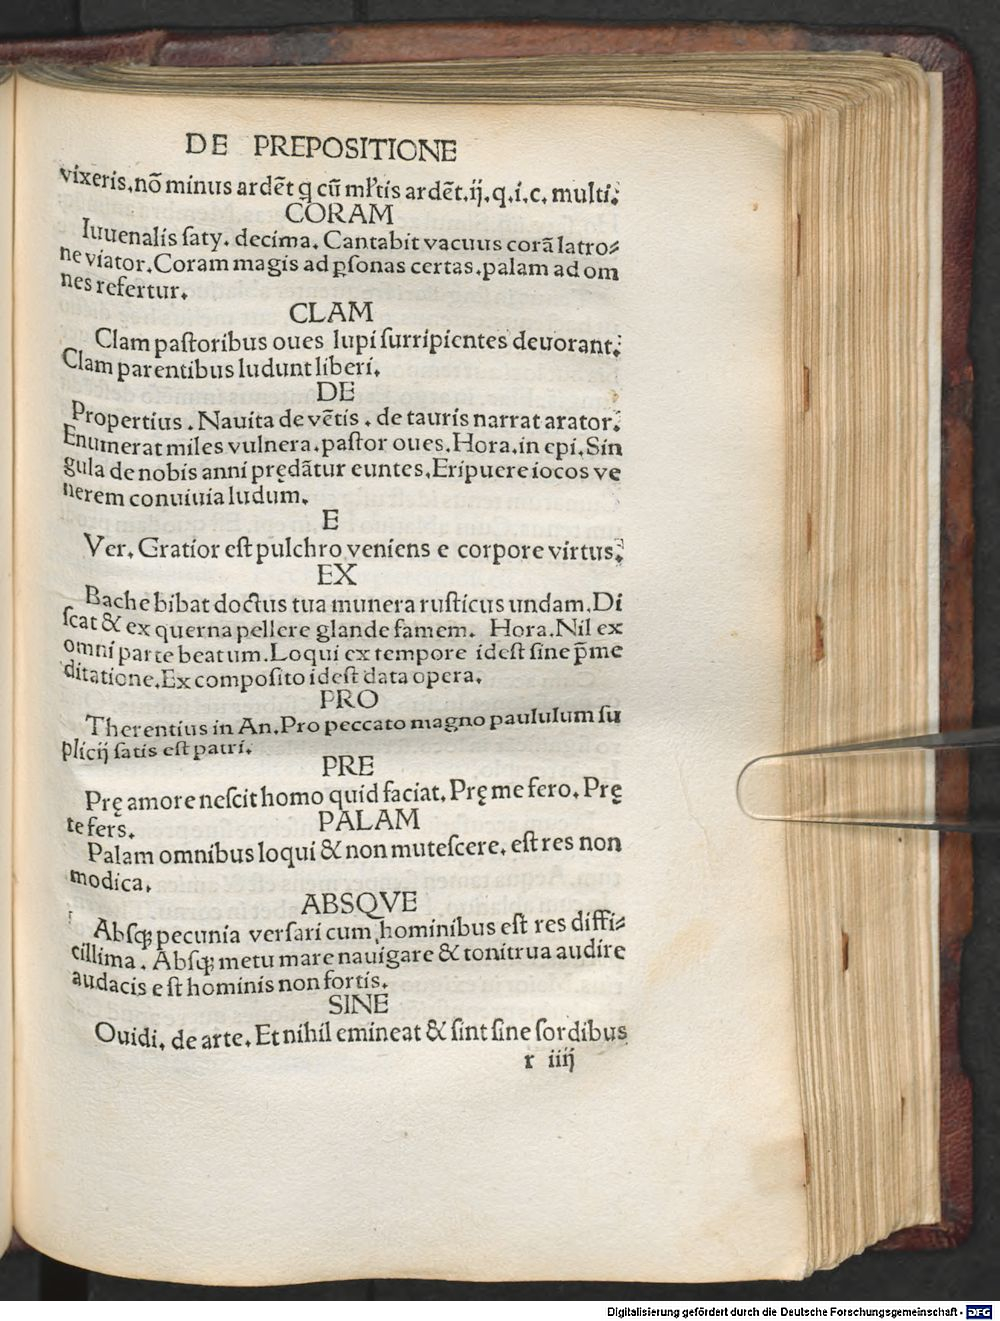 DE PREPOSITIONE
vixeris.nō minus ardēt q̄ cū ml'tis ardēt.ij.q.i.c. multi.
CORAM
Iuuenalis ſaty. decima. Cantabit vacuus corā latro⸗
ne viator.Coram magis ad ꝑſonas certas.palam ad om
nes refertur.
CLAM
Clam paſtoribus oues lupi ſurripientes deuorant.
Clam parentibus ludunt liberi.
DE
Propertius . Nauita de vētis . de tauris narrat arator.
Enumerat miles vulnera.paſtor oues.Hora.in epi.Sin
gula de nobis anni prędātur euntes.Eripuere iocos ve
nerem conuiuia ludum.
E
Ver. Gratior eſt pulchro veniens e corpore virtus.
EX
Bache bibat doctus tua munera ruſticus undam.Di
ſcat & ex querna pellere glande famem. Hora.Nil ex
omni parte beatum.Loqui ex tempore ideſt ſine p̄me
ditatione.Ex compoſito ideſt data opera.
PRO
Therentius in An.Pro peccato magno paululum ſu
plicij ſatis eſt patri.
PRE
Prę amore neſcit homo quid faciat. Prę me fero. Prę
te fers.
PALAM
Palam omnibus loqui & non muteſcere. eſt res non
modica.
ABSQVE
Abſqꝫ pecunia verſari cum hominibus eſt res diffi⸗
cillima . Abſqꝫ metu mare nauigare & tonitrua audire
audacis eſt hominis non fortis.
SINE
Ouidi. de arte. Et nihil emineat & ſint ſine ſordibus
r iiij
Digitalisierung gefördert durch die Deutsche Forschungsgemeinschaft - DFG